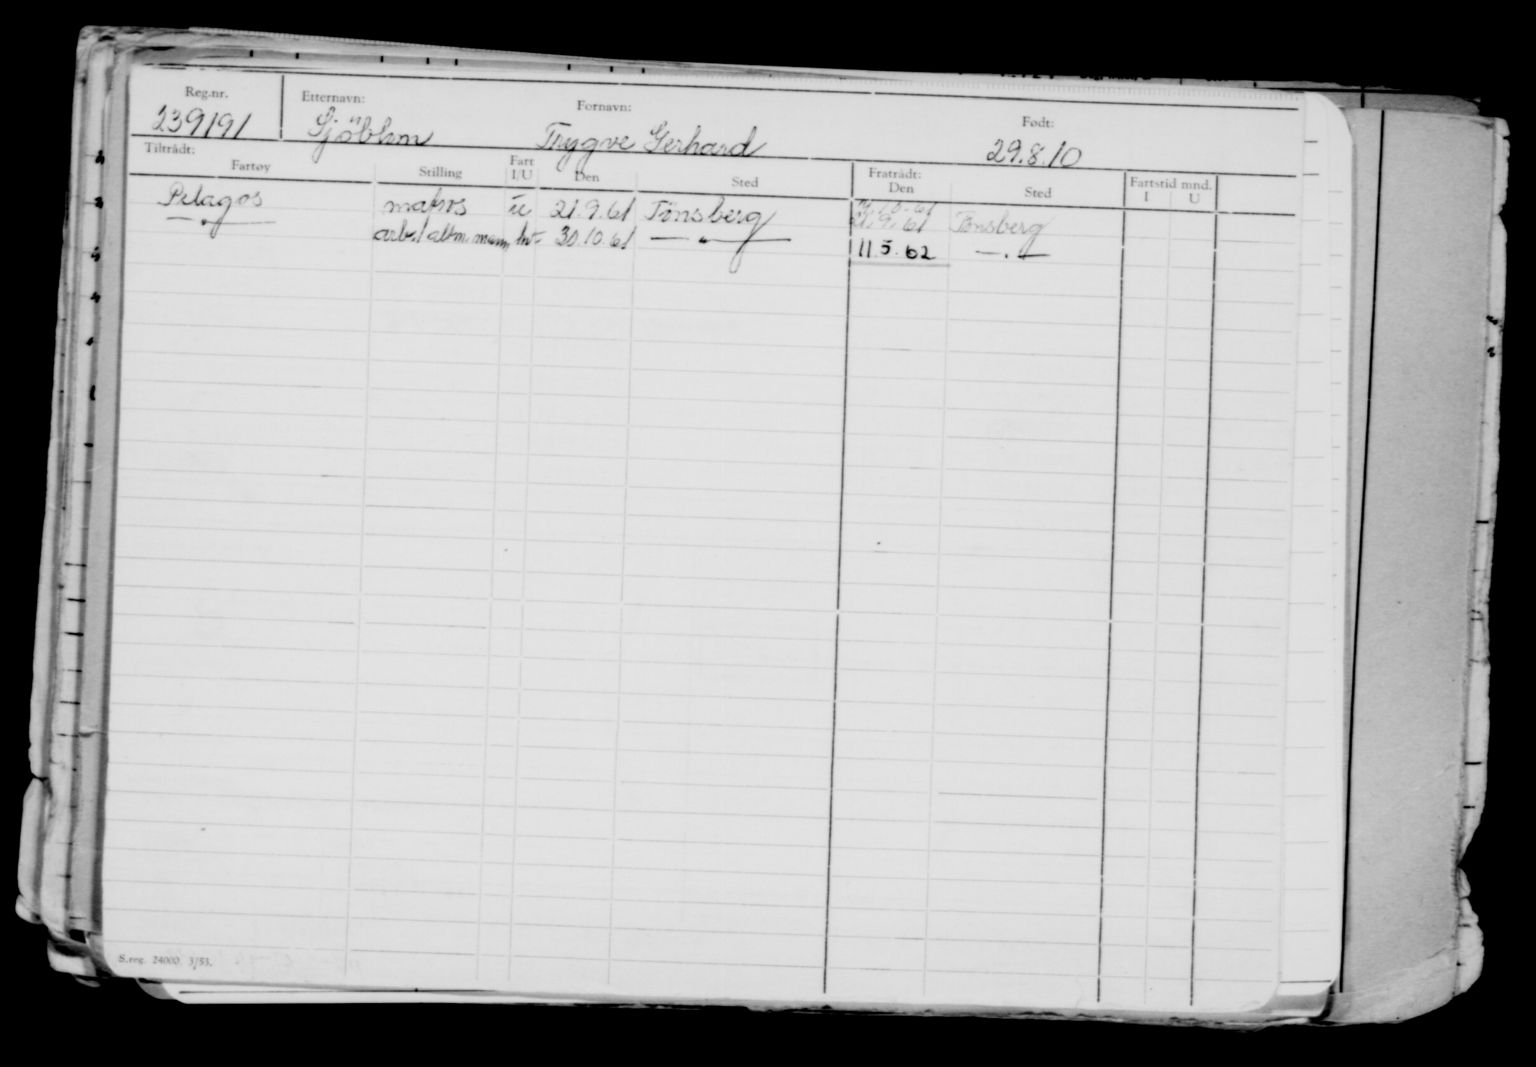 Reg.nr. Etternavn: Fornavn: Født:
239191 Sjöblom Trygve Gerhard 29.8.10
Tiltrådt: Fratrådt:
Fartøy Stilling Fart I/U Den Sted Den Sted Fartstid mnd. I U
Pelagos matros u 21.9.61 Tönsberg 21.9.61 Tönsberg
— " — arb./alm. mann hv- 30.10.61 — " — 11.5.62 — . —
S.reg. 24000 3/53.